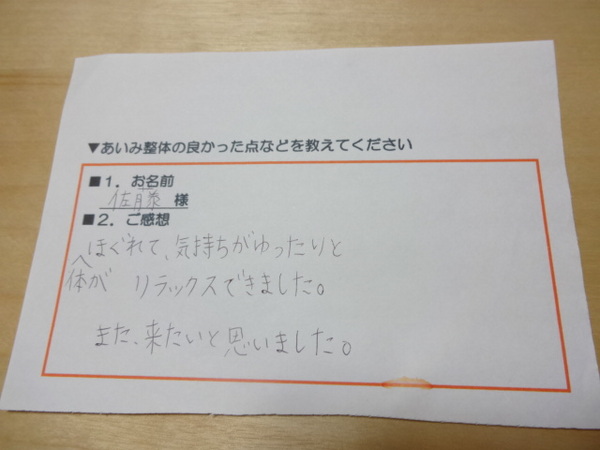 ▼あいみ整体の良かった点などを教えてください
■1. お名前
佐藤 様
■2. ご感想
ほぐれて、気持ちがゆったりと
体が リラックスできました。
また、来たいと思いました。